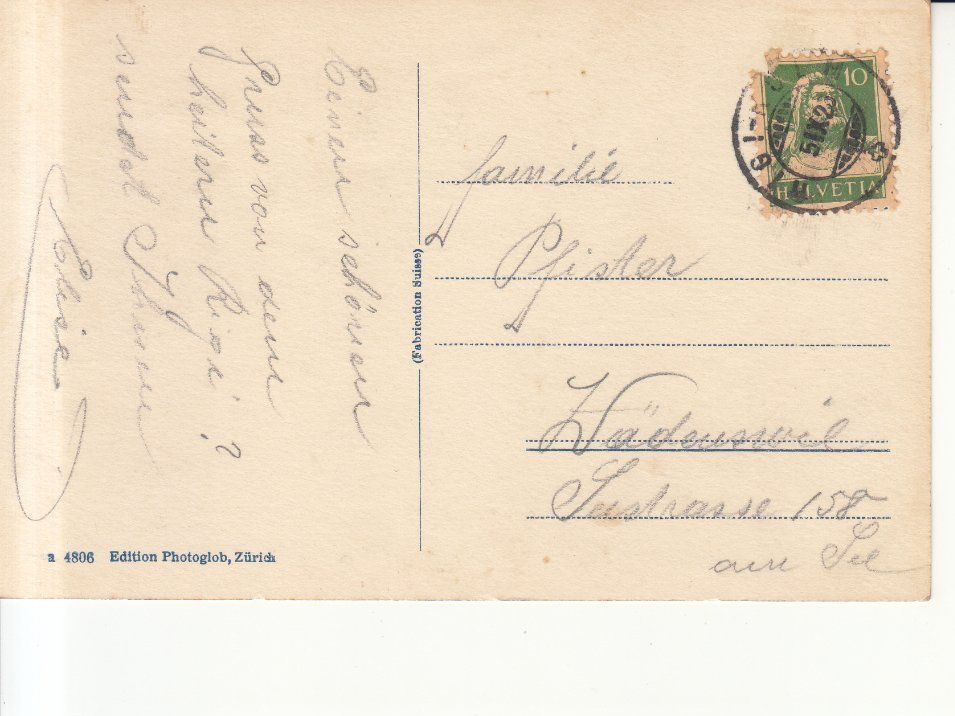 Einen schönen
Gruss von dem
heitern Rigi?
sendet Ihnen
familie
Pfister
Wädenswil
Seestrasse 158
am See
(Fabrication Suisse)
a 4806 Edition Photoglob, Zürich
10
HELVETIA
RIGI-
5 IX 2